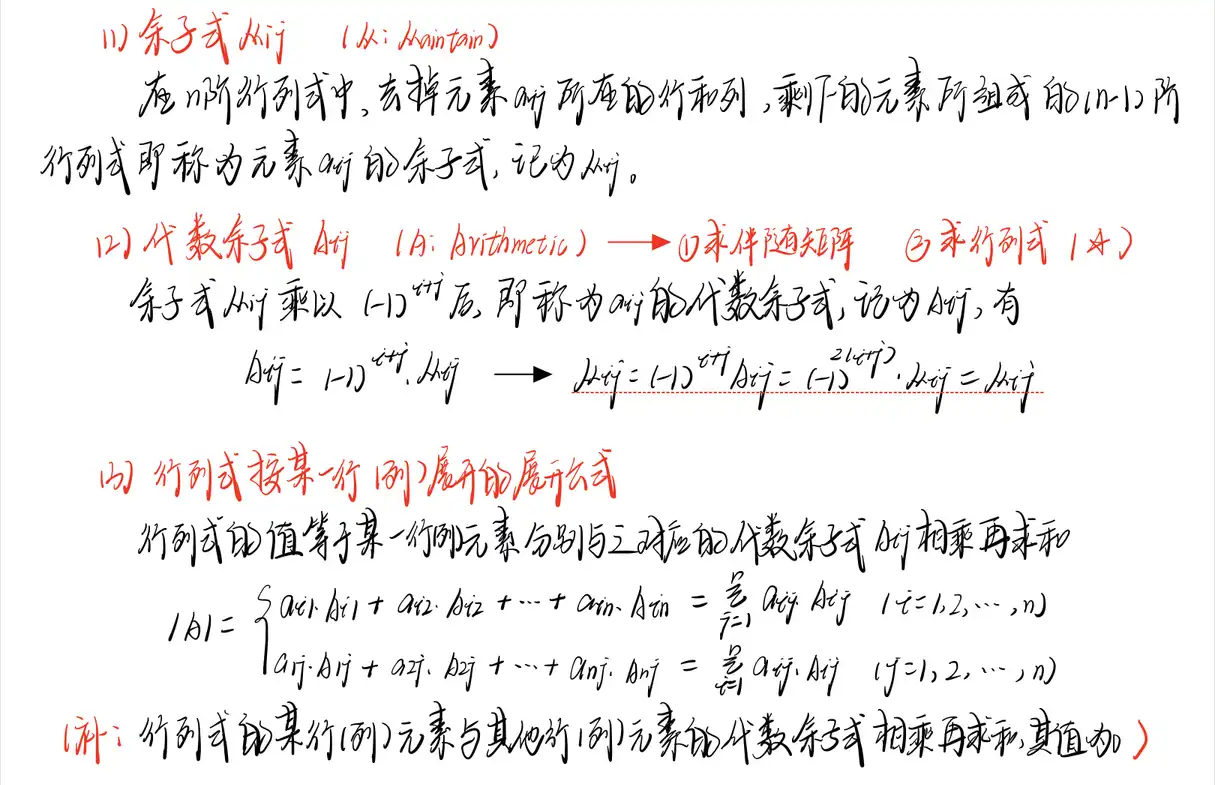 (1) 余子式 Mij (M: Maintain)
在n阶行列式中,去掉元素aij所在的行和列,剩下的元素所组成的(n-1)阶
行列式即称为元素aij的余子式,记为Mij。
(2) 代数余子式 Aij (A: Arithmetic) → ①求伴随矩阵 ②求行列式 (☆)
余子式Mij乘以 (-1)^{i+j} 后,即称为aij的代数余子式,记为Aij,有
Aij = (-1)^{i+j}·Mij → Mij = (-1)^{i+j}Aij = (-1)^{2(i+j)}·Mij = Mij
(3) 行列式按某一行(列)展开的展开公式
行列式的值等于某一行(列)元素分别与之对应的代数余子式Aij相乘再求和
|A| = { ai1·Ai1 + ai2·Ai2 + ··· + ain·Ain = \sum_{j=1}^{n} aij·Aij (i=1,2,···,n)
a1j·A1j + a2j·A2j + ··· + anj·Anj = \sum_{i=1}^{n} aij·Aij (j=1,2,···,n)
(补: 行列式的某行(列)元素与其他行(列)元素的代数余子式相乘再求和,其值为0)